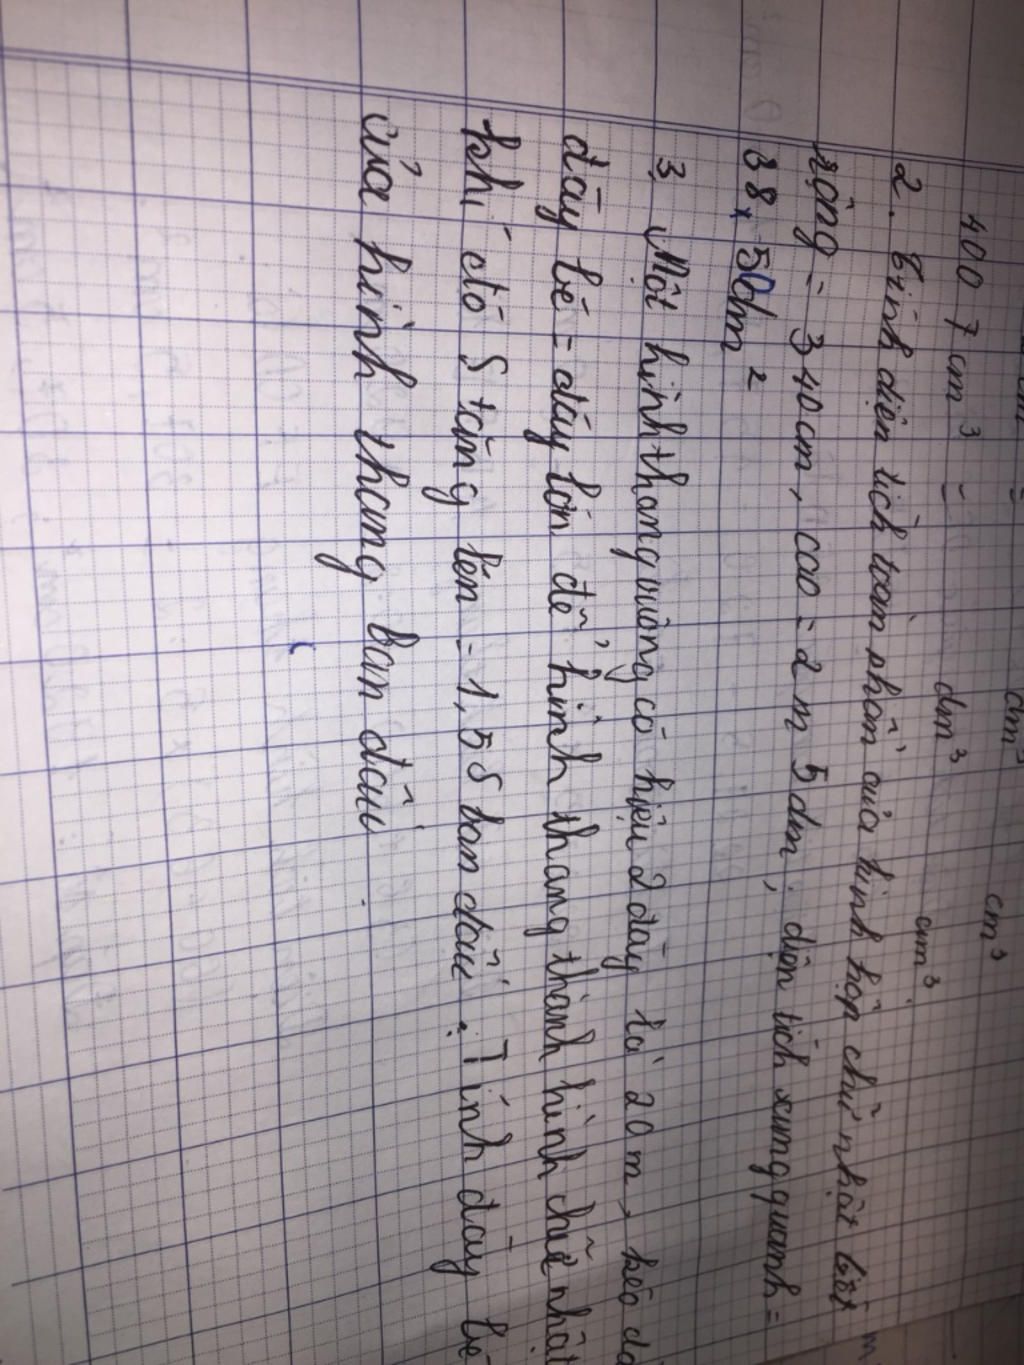 dm³ cm³
4007 cm³ = dm³ cm³
2. Tính diện tích toàn phần của hình hộp chữ nhật biết
rộng = 340cm, cao = 2m 5dm; diện tích xung quanh =
38,50dm²
3, Một hình thang vuông có hiệu 2 đáy là 20m, kéo
đáy bé = đáy lớn để hình thang thành hình chữ nhật
khi đó S tăng lên = 1,5 S ban đầu. Tính đáy bé
của hình thang ban đầu